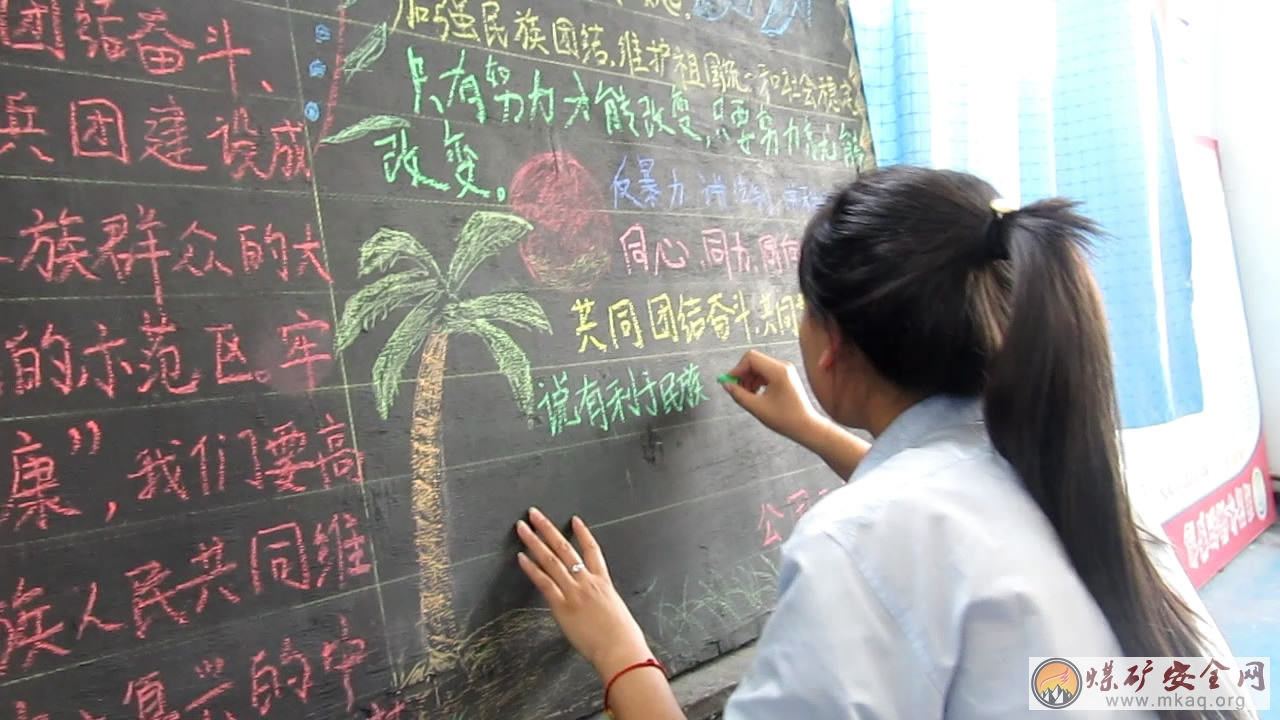 团结奋斗、
兵团建设成
族群众的大
的示范区。牢
康”,我们要高
族人民共同维
复兴的中
加强民族团结,维护祖国统一和社会稳定
只有努力才能改变,只要努力就能
改变。
反暴力 讲法制
同心,同力,同向
共同团结奋斗,共同
说有利于民族
公司
煤矿安全网
www.mkaq.org